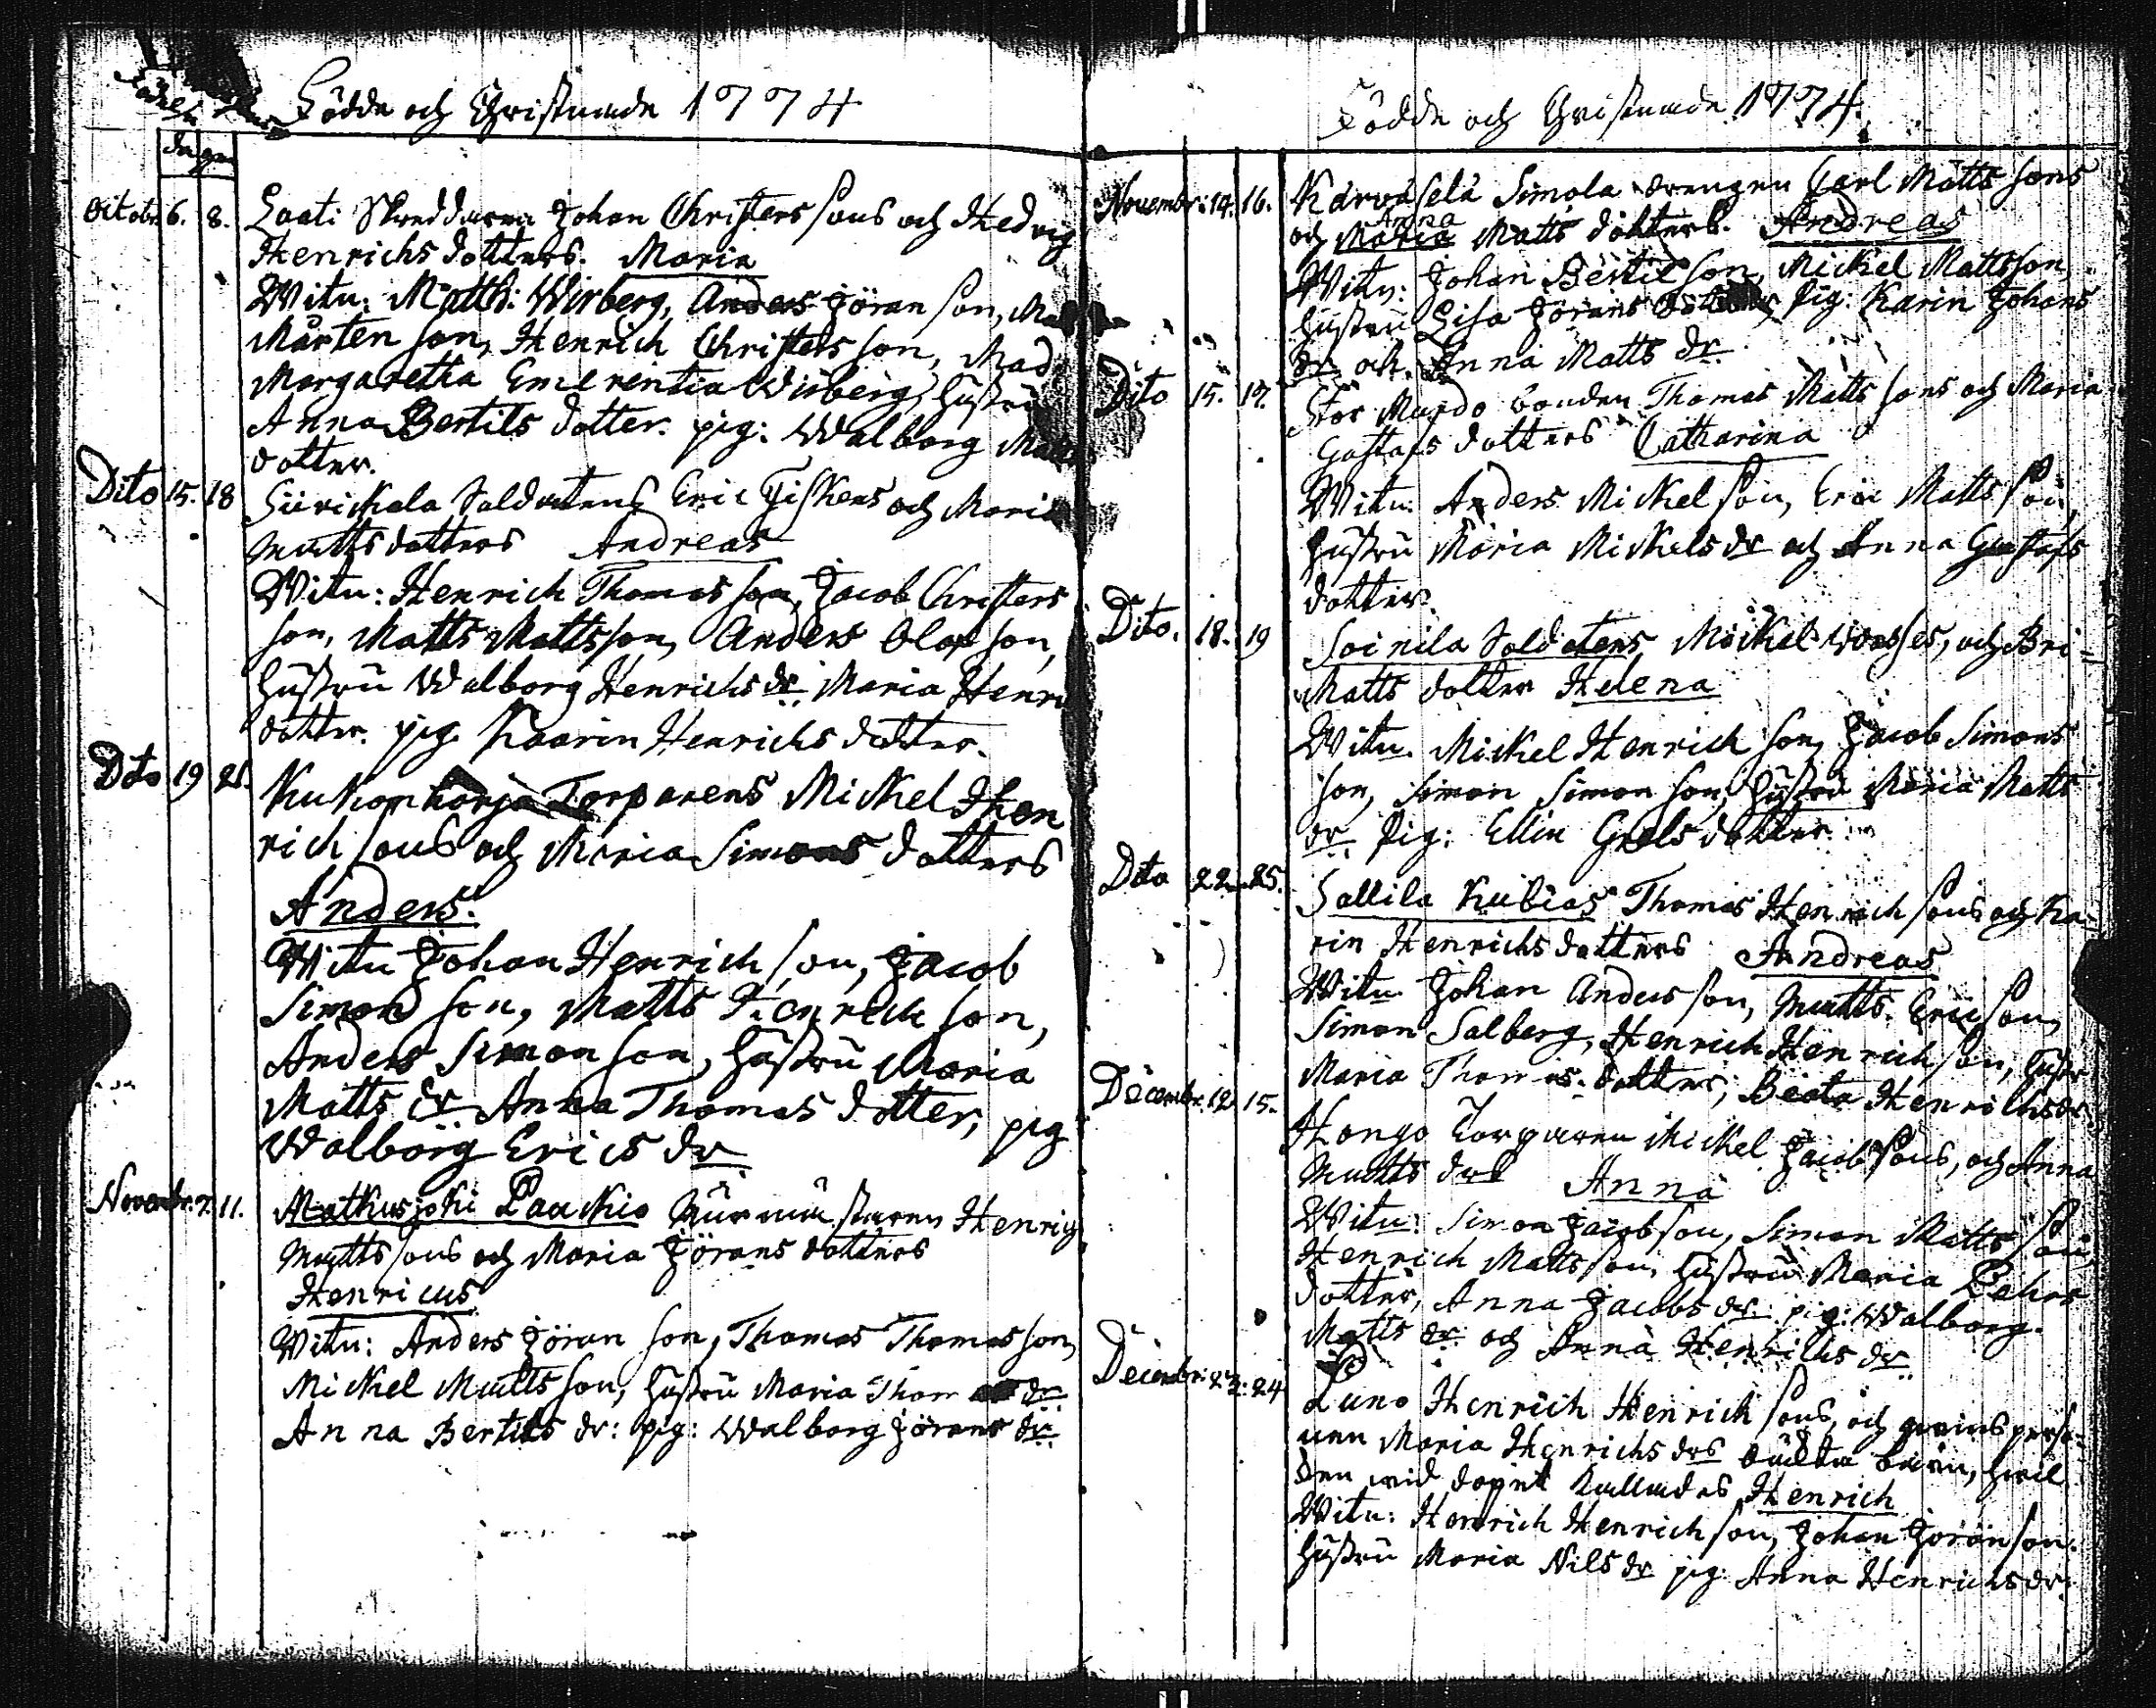 Födde och Christnade 1774
Födelse
dagen
Octobr. 6. 8. Laati Skreddaren Johan Christers sons och Hedvig
Henrichs dotters. Maria
Witn: Matth: Wirberg, Anders Jöran son,
Mårten son, Henrich Christers son, Mad.
Margaretha Emerentia Wirberg, hustru
Anna Bertils dotter. pig: Walborg Matts
dotter.
Dito 15. 18 Siirickala Soldatens Eric Fiskers och Maria
Matts dotters Andreas
Witn: Henrich Thomas son, Jacob Christers
son, Matts Matts son, Anders Olof son,
hustru Walborg Henrichs dr. Maria Henri
dotter. pig. Kaarin Henrichs dotter.
Dito 19 21. Kukonharja Torparens Mickel Hen
rich sons och Maria Simons dotters
Anders.
Witn Johan Henrich son, Jacob
Simons son, Matts Henrich son,
Anders Simon son, hustru Maria
Matts dr Anna Thomas dotter, pig
Walborg Erics dr
Novembr. 7. 11. Matkusjoki Lauckio Henrich
Matts sons och Maria Jörans dotters
Henricus
Witn: Anders Jöran son, Thomas Thomas son,
Mickel Matts son, hustru Maria Thom dr
Anna Bertils dr: pig: Walborg Jörans dr
Födde och Christnade 1774.
Novembr: 14. 16. Karvasela Simola drengen Carl Matts sons
Anna
och Maria Matts dotters. Andreas
Witn: Johan Bertil son, Mickel Matts son,
hustru Lisa Jörans dotter, Pig: Karin Johans
dr. och Anna Matts dr
Dito 15. 17. Stor Murdo bonden Thomas Matts sons och Maria
Gustafs dotters Catharina
Witn. Anders Mickel son, Eric Matts son,
hustru Maria Mickels dr och Anna Gustafs
dotter.
Dito. 18. 19 Soinila Soldatens Mickel Wasses, och Bri-
Matts dotter Helena
Witn. Mickel Henrich son, Jacob Simons
son, Simon Simon son, hustru Maria Matts
dr. Pig: Ellin Grels dotter.
Dito 22. 25. Sallila Kubias Thomas Henrich sons och Ka-
rin Henrichs dotters Andreas
Witn Johan Anders son, Matts Eric son,
Simon Salberg, Henrich Henrich son, hustr
Maria Thomas dotter, Beata Henrichs dr.
Decembr. 12. 15. Hongo Torparen Mickel Jacob sons, och Anna
Matts drs Anna
Witn: Simon Jacob son, Simon Matts son,
Henrich Matts son, hustru Maria Pehrs
dotter, Anna Jacobs dr. pig: Walborg
Matts dr och Anna Henrichs dr
Decembr: 23. 24 Luno Henrich Henrich sons, och qwinsperso-
nen Maria Henrichs drs oächta barn, hwil
den wid dopet kallades Henrich
Witn: Henrich Henrich son, Johan Jöran son.
hustru Maria Nils dr pig: Anna Henrichs dr.